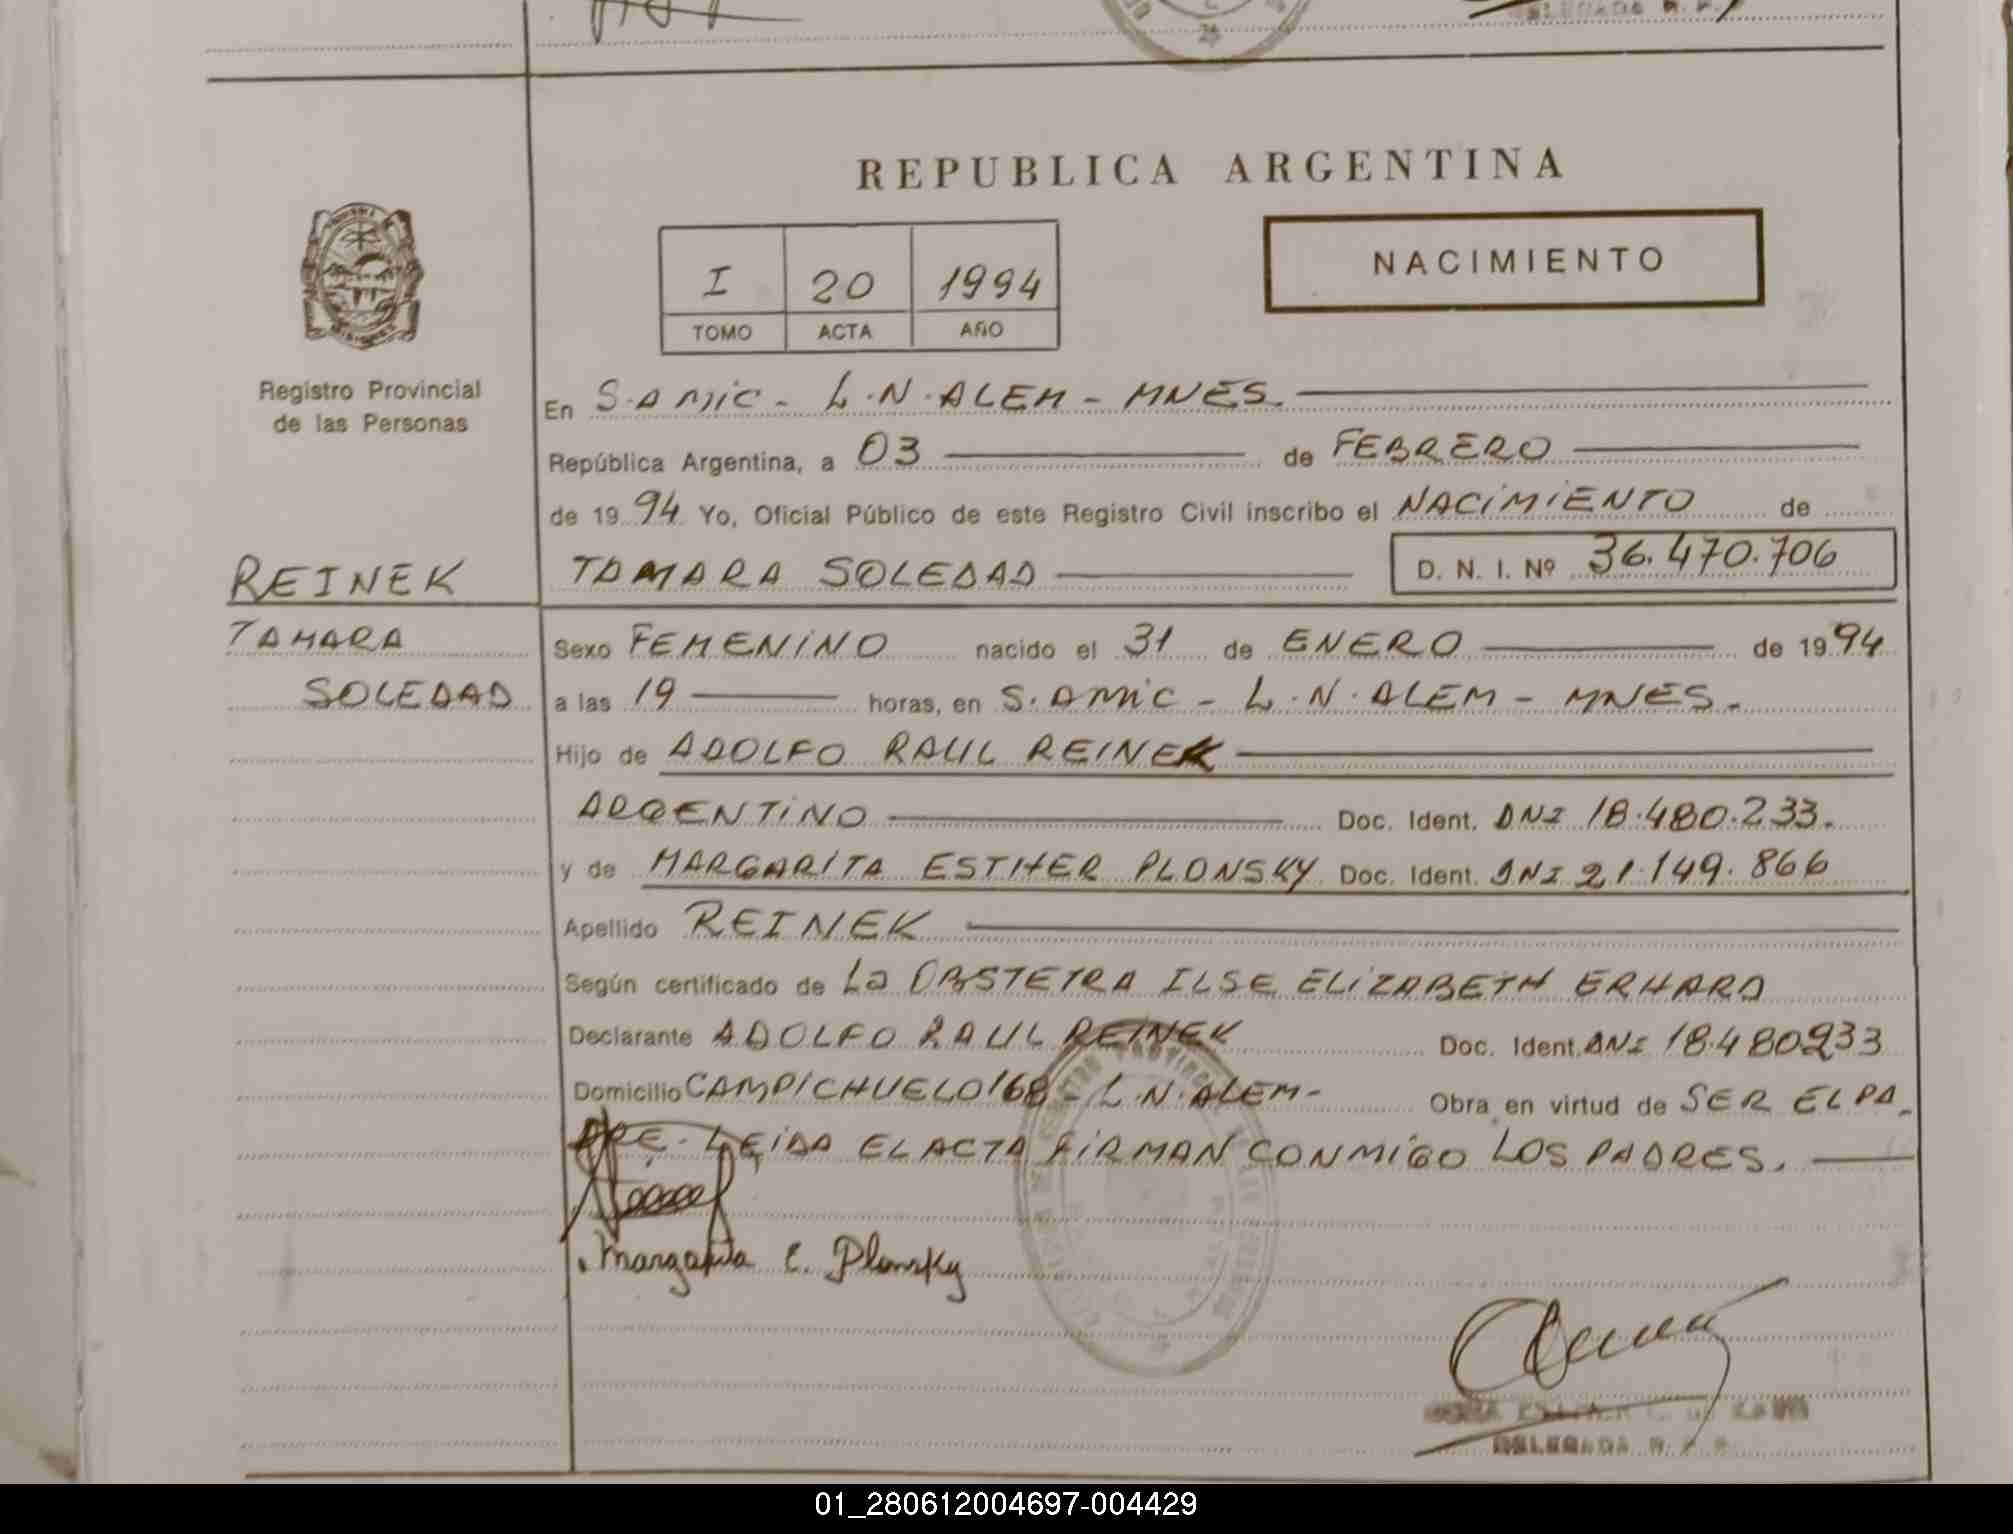 REPUBLICA ARGENTINA
I 20 1994
TOMO ACTA AÑO
NACIMIENTO
Registro Provincial
de las Personas
En S. AMIC - L.N. ALEM - MNES.
República Argentina, a 03 de FEBRERO
de 1994 Yo, Oficial Público de este Registro Civil inscribo el NACIMIENTO de
TAMARA SOLEDAD D. N. I. Nº 36.470.706
REINEK
TAMARA
SOLEDAD
Sexo FEMENINO nacido el 31 de ENERO de 1994
a las 19 horas, en S. AMIC - L.N. ALEM - MNES.
Hijo de ADOLFO RAUL REINEK
ARGENTINO Doc. Ident. DNI 18.480.233.
y de MARGARITA ESTHER PLONSKY Doc. Ident. DNI 21.149.866
Apellido REINEK
Según certificado de La OBSTETRA ILSE ELIZABETH ERHARD
Declarante ADOLFO RAUL REINEK Doc. Ident. DNI 18.480233
Domicilio CAMPICHUELO 168 - L.N. ALEM - Obra en virtud de SER EL PA_
DRE. LEIDA EL ACTA FIRMAN CONMIGO LOS PADRES.
Margarita E. Plonsky
DELEGADA R. P.
01_280612004697-004429